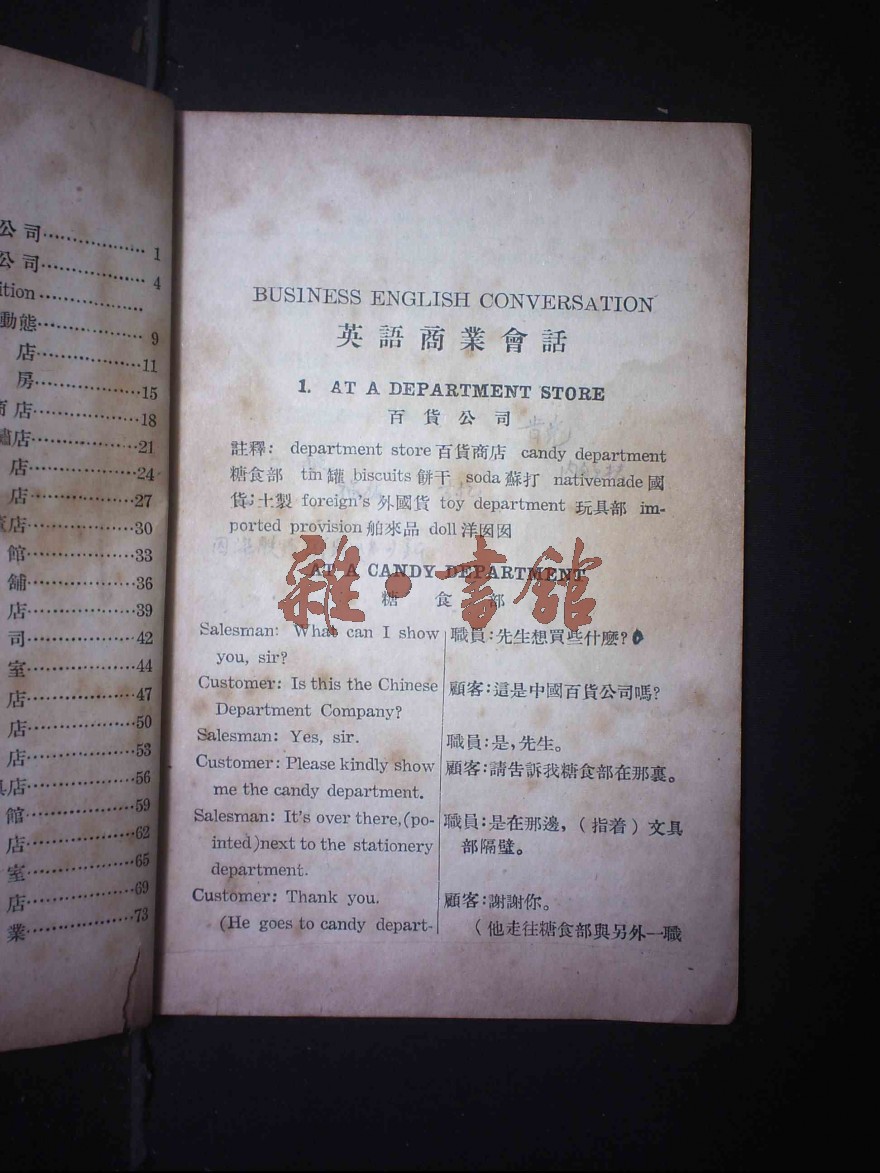 公司 1
公司 4
ition
動態 9
店 11
房 15
店 18
店 21
店 24
店 27
店 30
館 33
舖 36
店 39
司 42
室 44
店 47
店 50
店 53
店 56
館 59
店 62
室 65
店 69
業 73
BUSINESS ENGLISH CONVERSATION
英語商業會話
1. AT A DEPARTMENT STORE
百貨公司
註釋: department store 百貨商店 candy department
糖食部 tin 罐 biscuits 餅干 soda 蘇打 nativemade 國
貨;土製 foreign's 外國貨 toy department 玩具部 im-
ported provision 舶來品 doll 洋囡囡
AT A CANDY DEPARTMENT
糖食部
雜·書館
Salesman: What can I show
you, sir?
Customer: Is this the Chinese
Department Company?
Salesman: Yes, sir.
Customer: Please kindly show
me the candy department.
Salesman: It's over there,(po-
inted)next to the stationery
department.
Customer: Thank you.
(He goes to candy depart-
職員:先生想買些什麼?
顧客:這是中國百貨公司嗎?
職員:是,先生。
顧客:請告訴我糖食部在那裏。
職員:是在那邊,(指着)文具
部隔壁。
顧客:謝謝你。
(他走往糖食部與另外一職